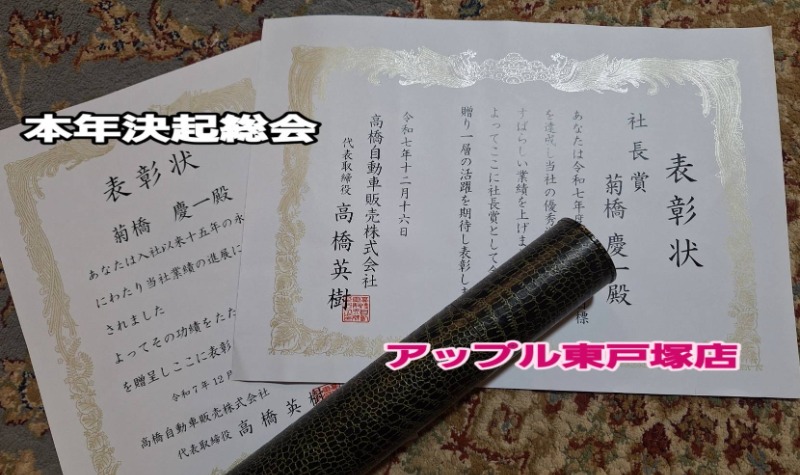 本年決起総会
表彰状
社長賞
菊橋 慶一殿
あなたは令和七年度
標
を達成し当社の優秀
すばらしい業績を上げま
よってここに社長賞として
贈り一層の活躍を期待し表彰しま
令和七年十二月十六日
高橋自動車販売株式会社
代表取締役 高橋英樹
表彰状
菊橋 慶一殿
あなたは入社以来十五年の永
にわたり当社業績の進展に
されました
よってその功績をたた
を贈呈しここに表彰
令和7年12月
高橋自動車販売株式会社
代表取締役 高橋英樹
アップル東戸塚店